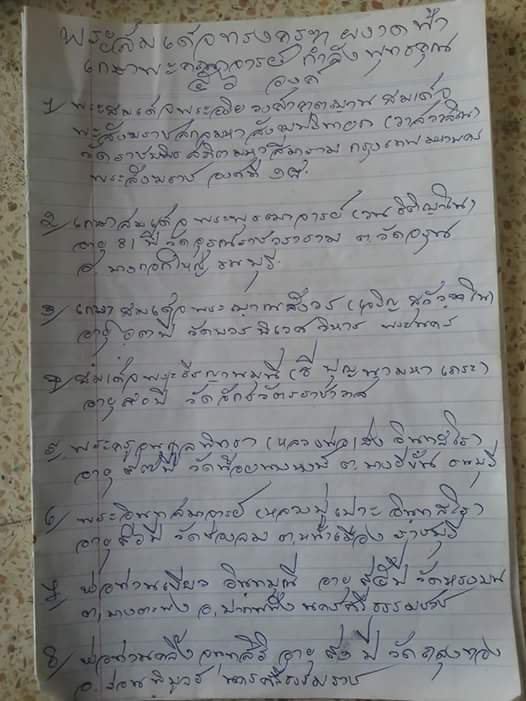 พระสมเด็จทรงครุฑ ผงาดฟ้า
เกษาพระคณาจารย์ กำลังพุทธคุณ
๕๖ องค์
1 พระสมเด็จพระอริยวงศาคตญาณ สมเด็จ
พระสังฆราชสกลมหาสังฆปรินายก (วาสน์)
วัดราชบพิธสถิตมหาสีมาราม กรุงเทพมหานคร
พระสังฆราช องค์ที่ ๑๘.
2 เกษาสมเด็จ พระพุฒาจารย์ (วน)
อายุ 81 ปี วัดอรุณราชวราราม ต. วัดอรุณ
อ. บางกอกใหญ่ ธนบุรี.
๓ เกษา สมเด็จ พระญาณสังวร (เจริญ สุวฑฺฒโน)
อายุ ๖๓ ปี วัดบวรนิเวศวิหาร พระนคร
๔ สมเด็จพระธีรญาณมุนี (ธี ปุณฺณ มหาเถระ)
อายุ ปี วัดจักรวรรดิราชาวาส
๕ พระครู (หลวงพ่อเส่ง อินฺทสโร)
อายุ ปี วัดน้อยนางหงษ์ ต. บางยี่ขัน ธนบุรี
๖ พระอินทสมาจารย์ (หลวงปู่เงาะ อินฺทสโร)
อายุ ปี วัดช่องลม ต. หน้าเมือง ราชบุรี
๗ พ่อท่านเขียว อินฺทมุนี อายุ ปี วัดหรงบน
ต. บางตะพง อ. ปากพนัง นครศรีธรรมราช
8 พ่อท่านคลิ้ง จนฺทสิริ อายุ ปี วัดถลุงทอง
อ. ร่อนพิบูลย์ นครศรีธรรมราช